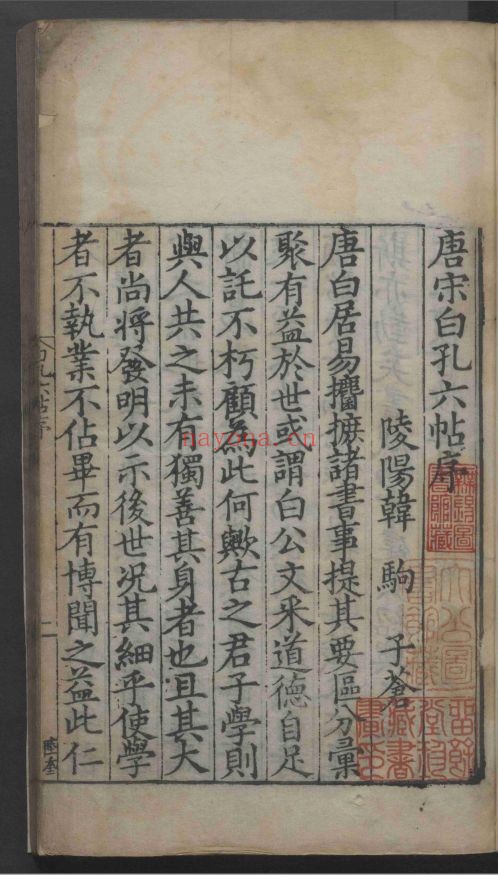 唐宋白孔六帖序
陵陽韓　駒　子蒼
唐白居易攟摭諸書事提其要區分彙
聚有益於世或謂白公文釆道德自足
以託不朽顧為此何歟古之君子學則
與人共之未有獨善其身者也且其大
者尚將發明以示後世况其細乎使學
者不執業不佔畢而有博聞之益此仁
白孔六帖序
一
陸奎
nayona.cn